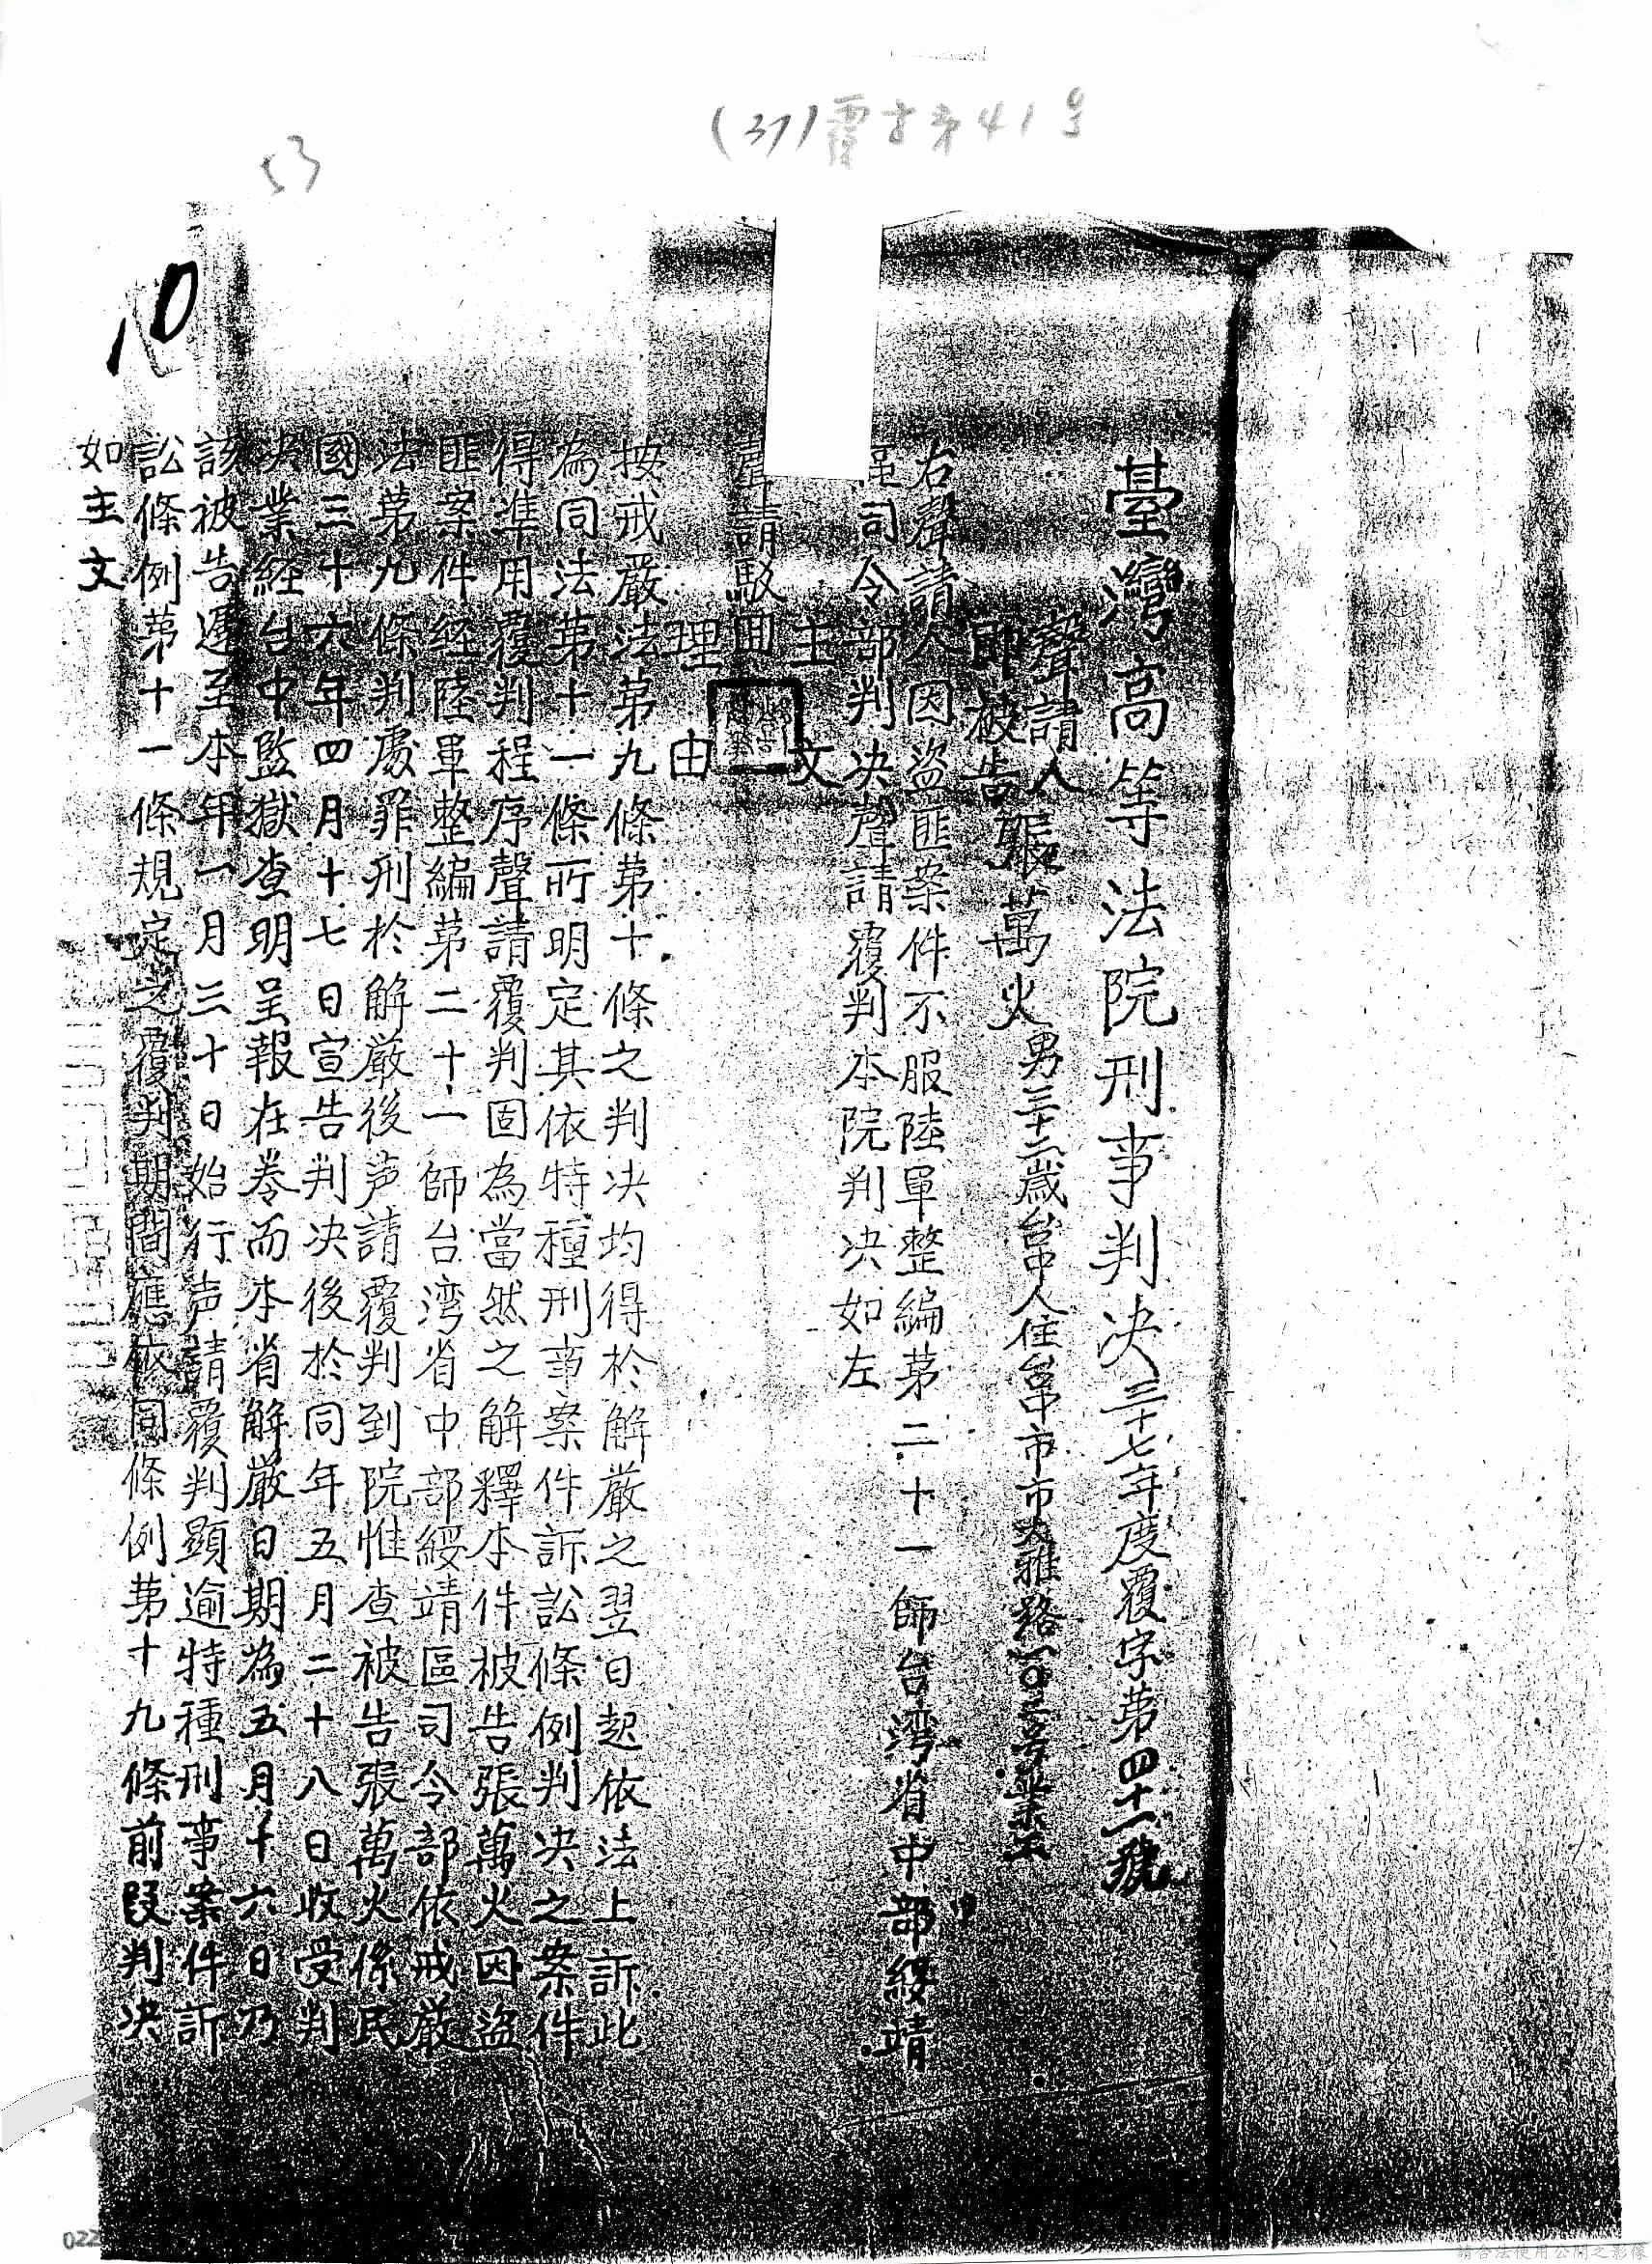 (37)覆字第41号
53
10
臺灣高等法院刑事判决三十七年度覆字第四十一號
聲請人
即被告張萬火男三十二歲台中人住台中市市大雅路一〇二号業工
右聲請人因盜匪案件不服陸軍整編第二十一師台湾省中部綏靖
區司令部判决聲請覆判本院判决如左
主文
聲請駁囬
理由
按戒嚴法第九條第十條之判决均得於解嚴之翌日起依法上訴此
為同法第十一條所明定其依特種刑事案件訴訟條例判决之案件
得準用覆判程序聲請覆判固為當然之解釋本件被告張萬火因盜
匪案件経陸軍整編第二十一師台湾省中部綏靖區司令部依戒嚴
法第九條判處罪刑於解嚴後声請覆判到院惟查被告張萬火係民
國三十六年四月十七日宣告判决後於同年五月二十八日收受判
决業経台中監獄查明呈報在卷而本省解嚴日期為五月十六日乃
該被告遲至本年一月三十日始行声請覆判顯逾特種刑事案件訴
訟條例第十一條規定之覆判期間應依同條例第十九條前段判决
如主文
022
請合法使用公開之影像